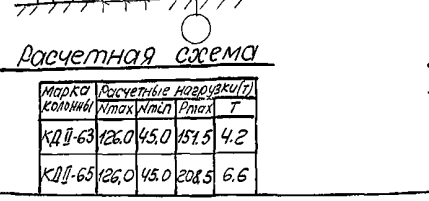 Расчетная схема
Марка колонны Расчетные нагрузки(т)
Nmax Nmin Pmax T
КДII-63 126.0 45,0 151.5 4.2
КДII-65 126,0 45.0 208.5 6.6